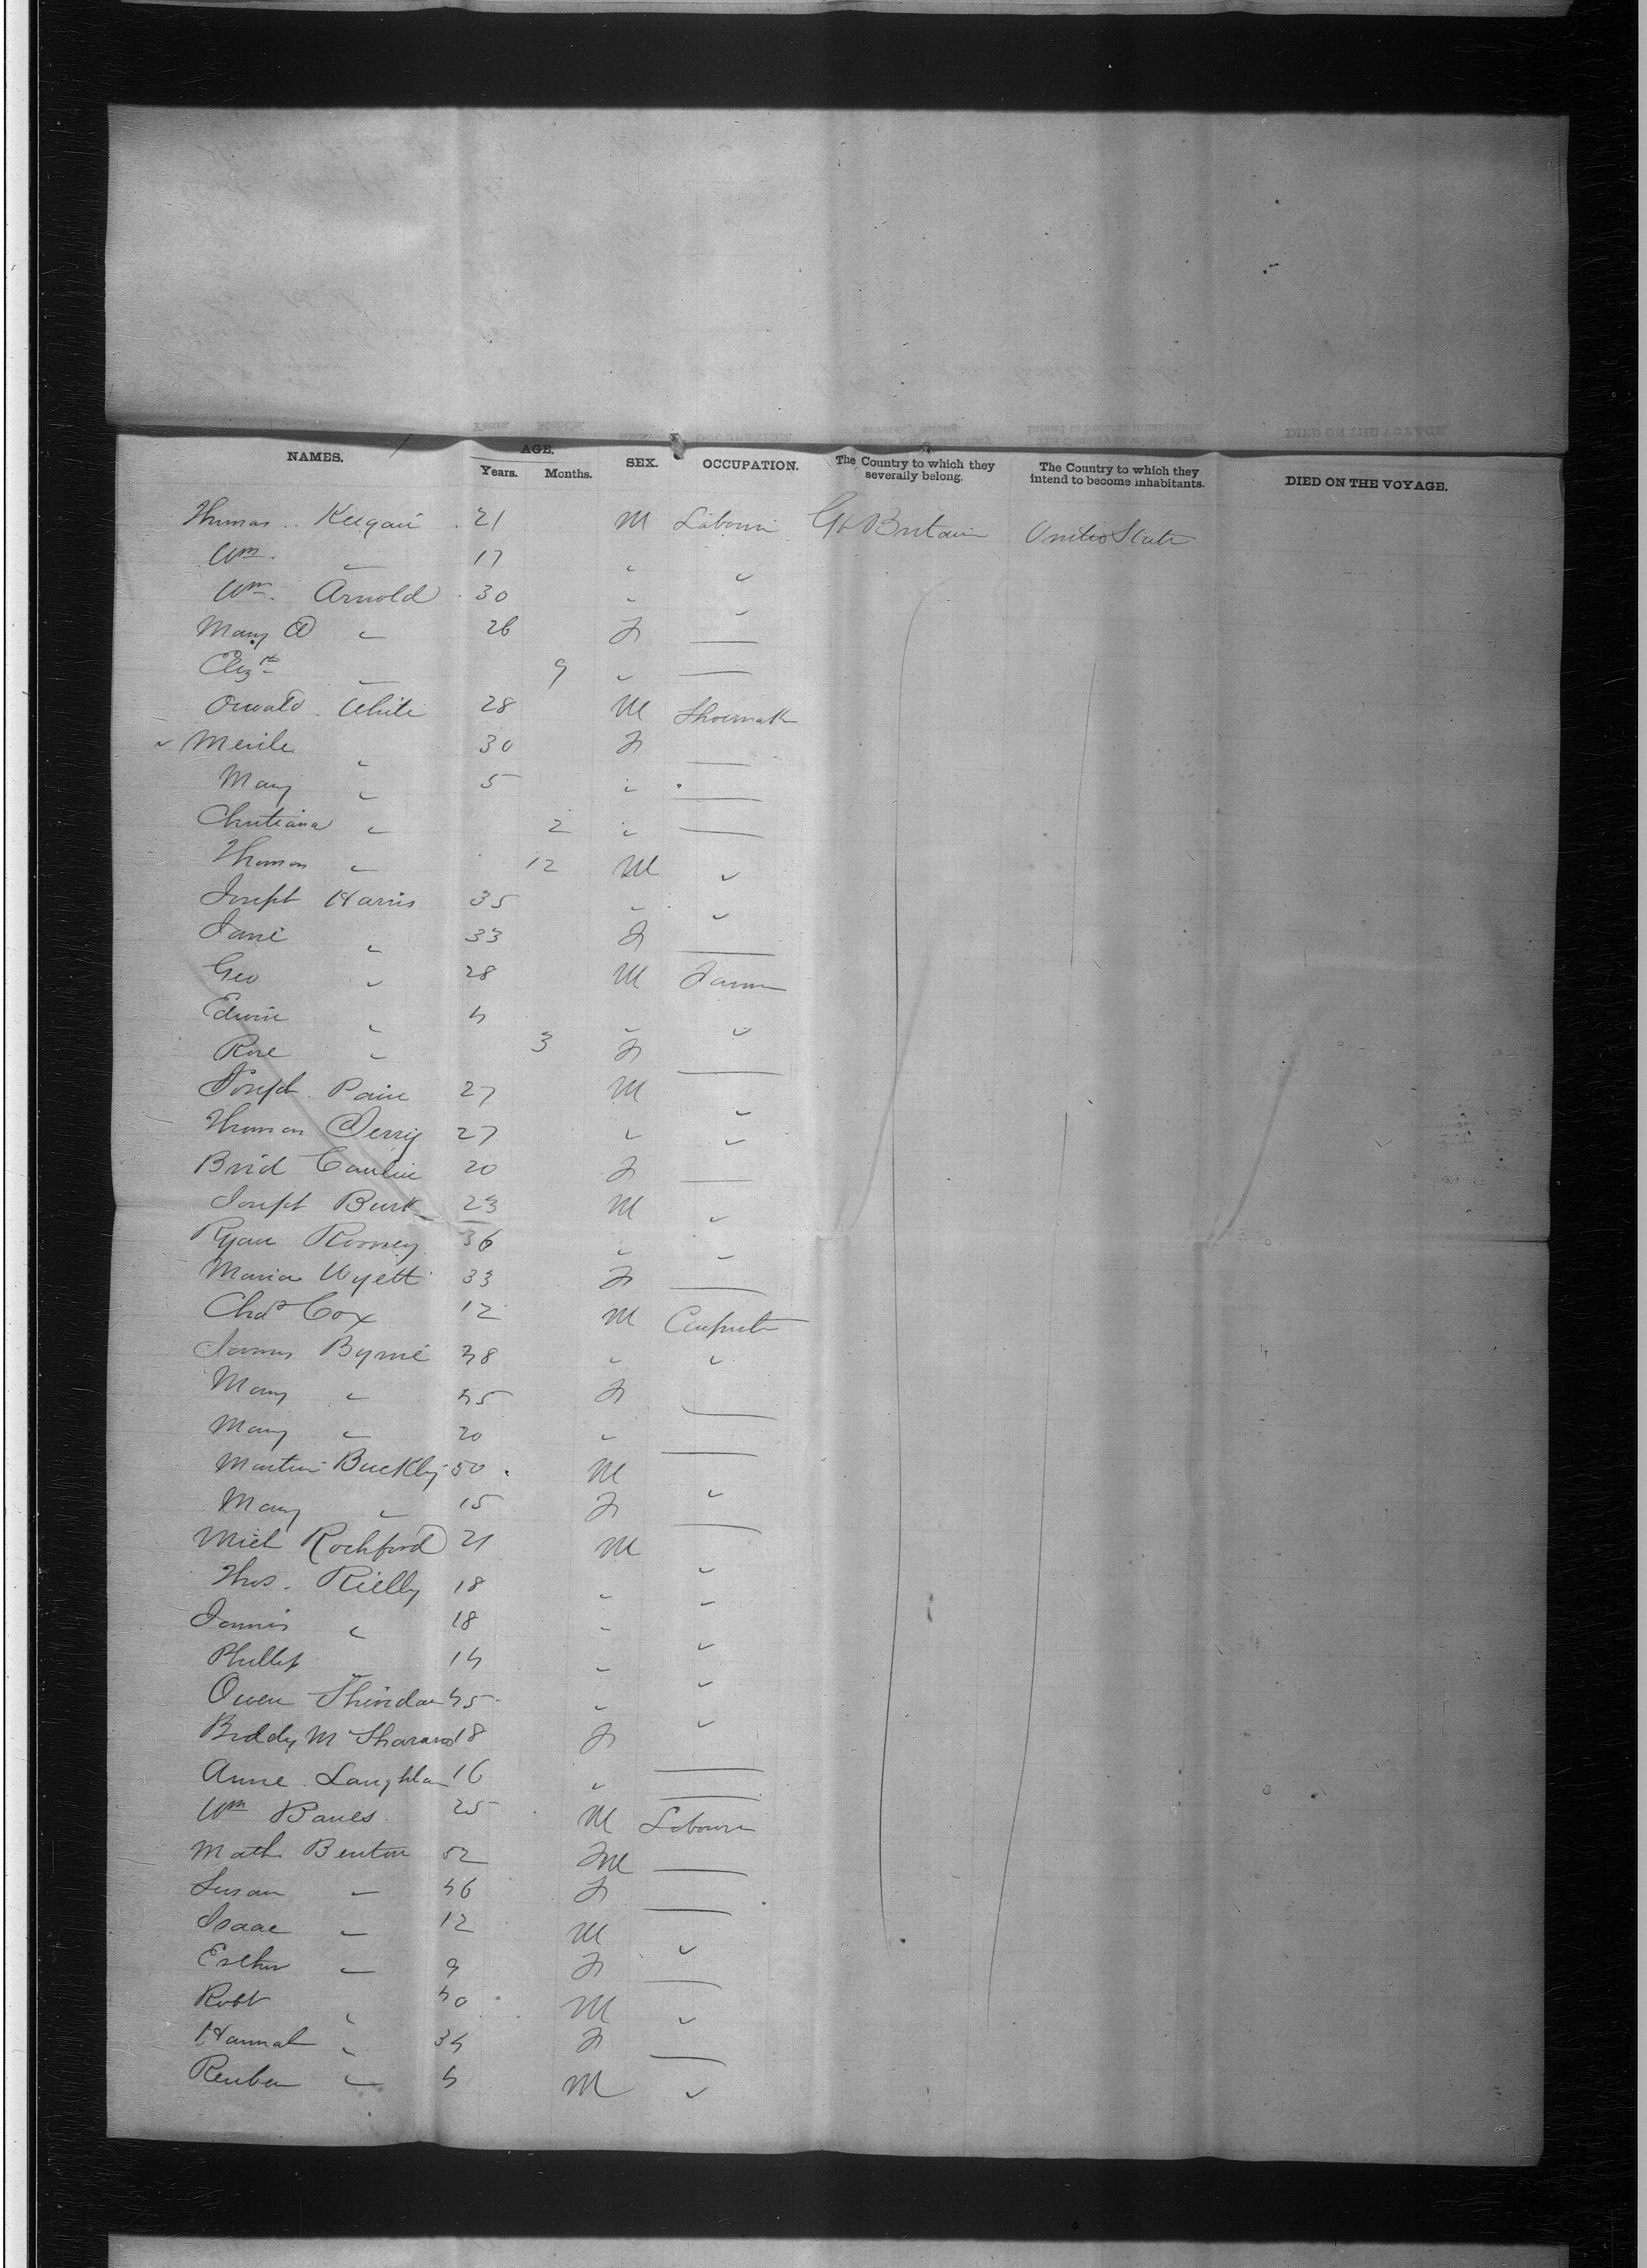 NAMES. AGE. Years. Months. SEX. OCCUPATION. The Country to which they severally belong. The Country to which they intend to become inhabitants. DIED ON THE VOYAGE.
Thomas Keegan 21 M Labourer Gt Britain United State
Wm. " 17 " "
Wm. Arnold 30 " "
Mary A " 26 F —
Elizth " 9 " —
Oswald White 28 M Shoemak
" 30 F —
Mary " 5 " —
Christiana " 2 " —
Thomas " 12 M "
Joseph Harris 35 " "
Jane " 33 F —
Geo " 28 M Farmer
Edwin " 4 " "
Rose " 3 F —
Joseph Paine 27 M "
Thomas Derry 27 " "
Brid 20 F —
Joseph Burk 23 M "
Ryan Rooney 36 " "
Maria Wyett 33 F —
Chas Cox 12 M Carpenter
James Byrne 48 " "
Mary " 45 F —
Mary " 20 " —
Martin Buckley 50 M "
Mary " 15 F —
Mich Rochford 21 M "
Thos. Rielly 18 " "
James " 18 " "
Phillip 14 " "
Owen Sheridan 45 " "
Biddy 18 F —
Anne Laughlan 16 " —
Wm Banes 25 M Labourer
Math Benton 52 M —
Susan " 46 F —
Isaac " 12 M "
Esther " 9 F —
Robt " 40 M "
Hannah " 34 F —
Reuben " 4 M "